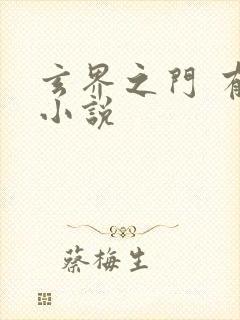 玄界之門
小說
蔡梅生